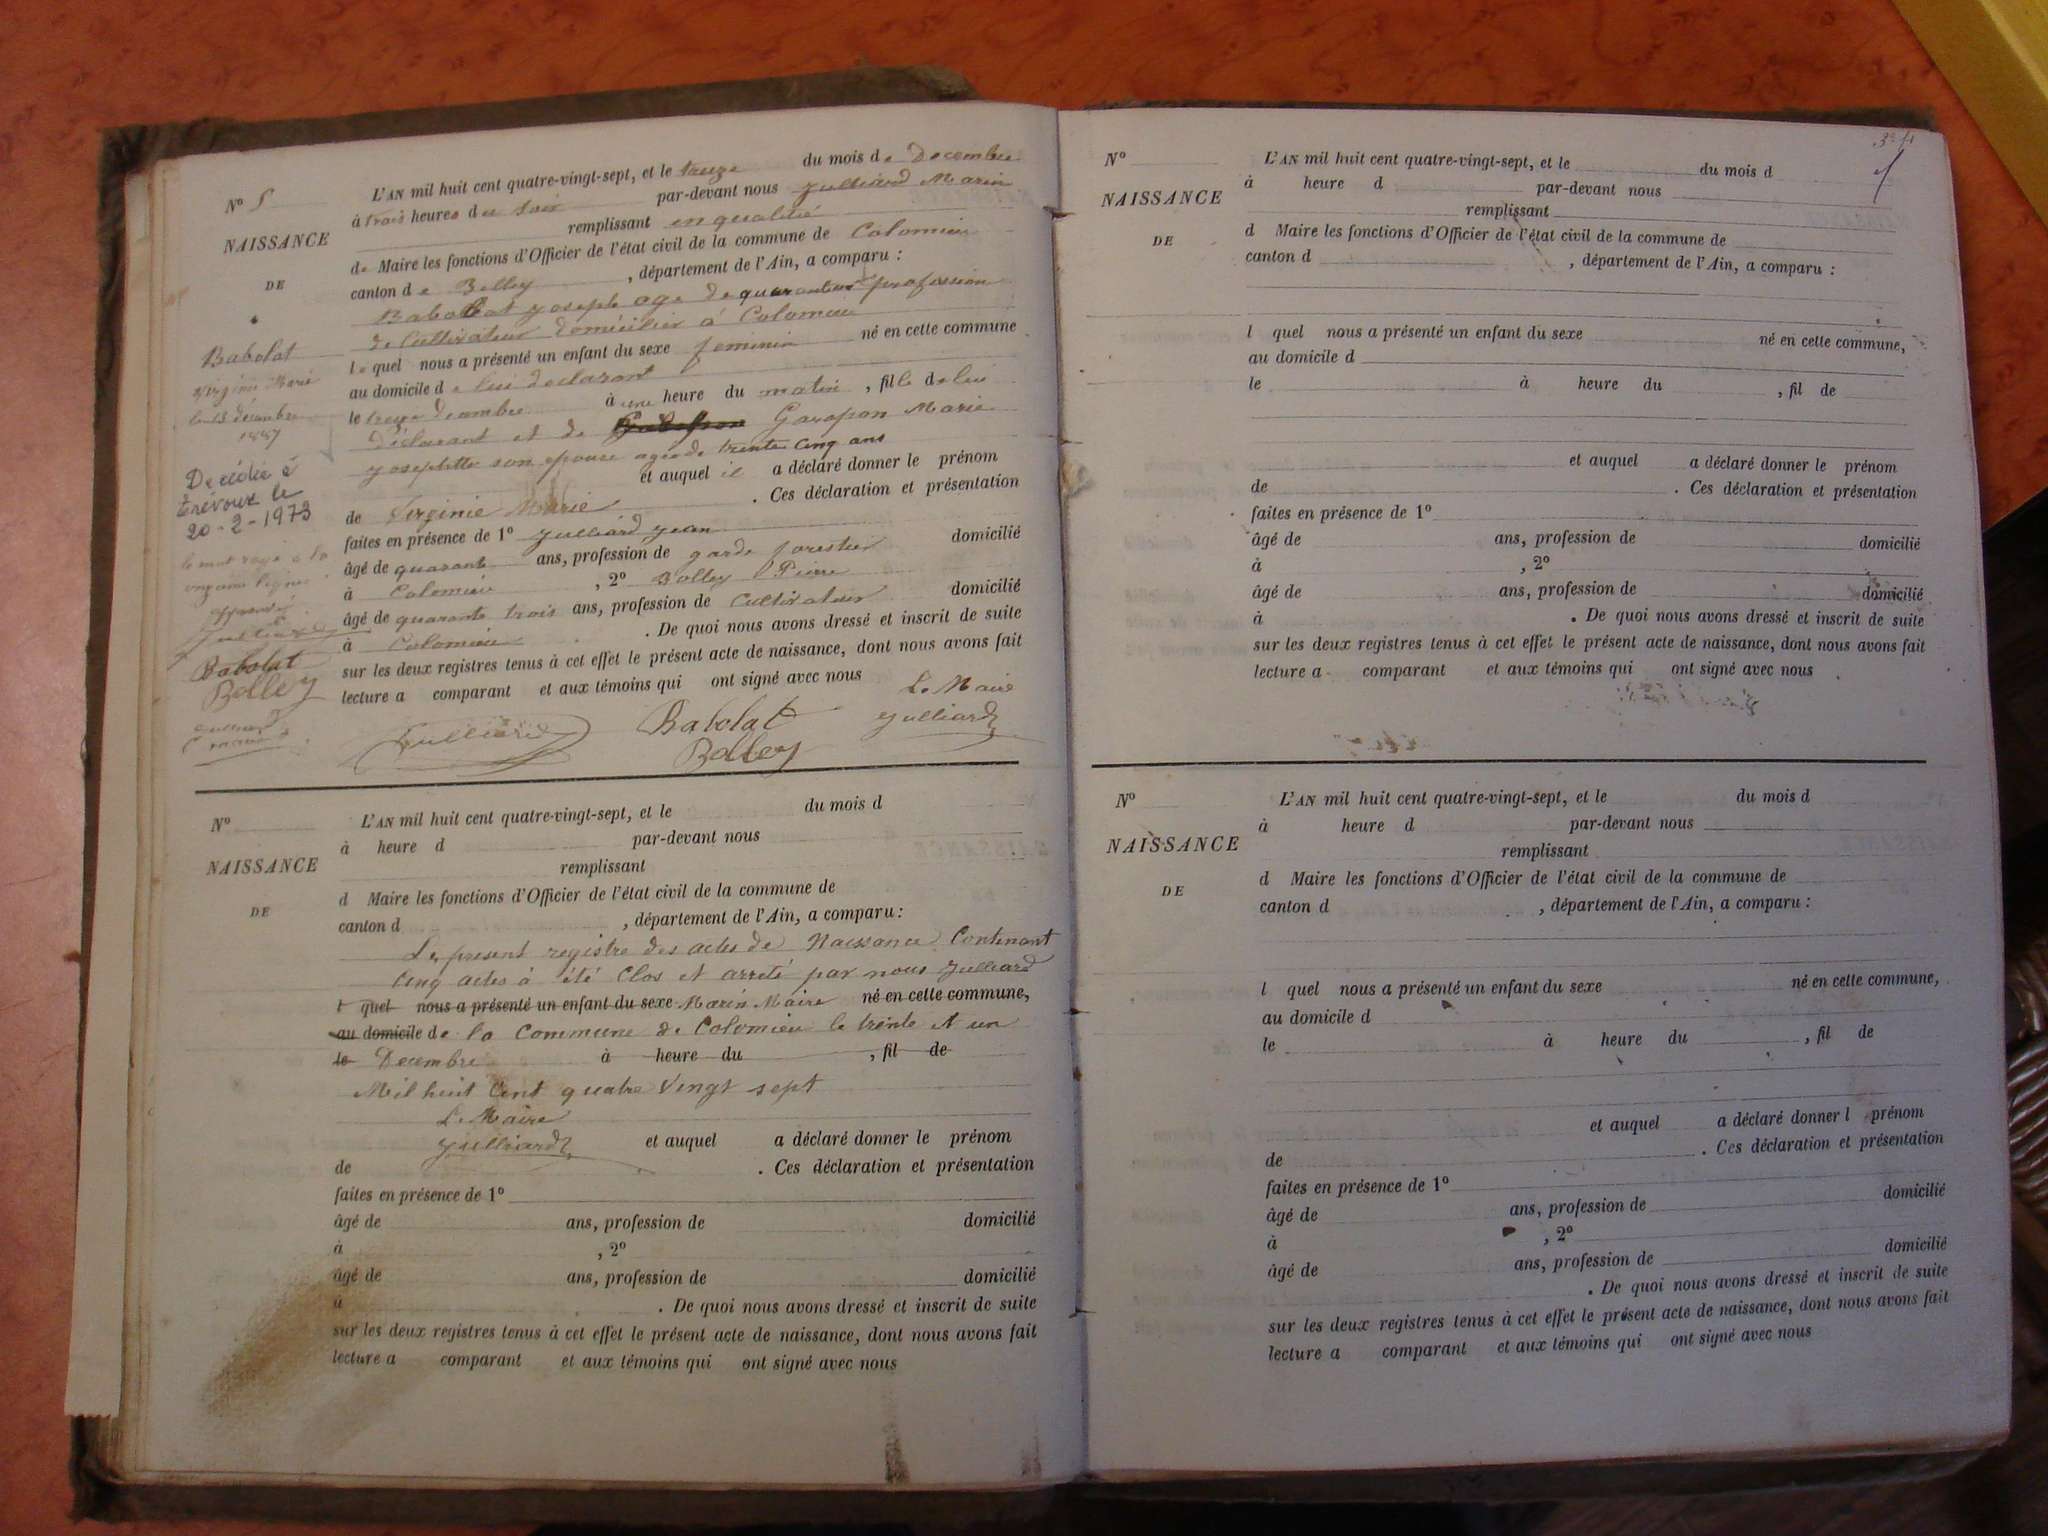 L'AN mil huit cent quatre-vingt-sept, et le treize du mois de Decembre
N° 5
à trois heures du soir par-devant nous Julliard Marin
NAISSANCE
remplissant en qualité
de Maire les fonctions d'Officier de l'état civil de la commune de Colomieu
DE
canton de Belley , département de l'Ain, a comparu :
Babolat Joseph age de quarante profession
de Cultivateur domicilier à Colomieu
Babolat
le quel nous a présenté un enfant du sexe feminin né en cette commune
Virginie Marie
au domicile de lui declarant
le 13 décembre
1887
le treize decembre à une heure du matin , fille de lui
déclarant et de Garapon Marie
Josephtte son epouse agée de trente cinq ans
Decédée à
Trévoux le
20-2-1973
et auquel il a déclaré donner le prénom
de Virginie Marie . Ces déclaration et présentation
faites en présence de 1° Julliard Jean
le mot rayé a la
onzieme ligne
âgé de quarante ans, profession de garde forestier domicilié
à Colomieu , 2° Bolley Pierre
âgé de quarante trois ans, profession de Cultivateur domicilié
Julliard
à Colomieu . De quoi nous avons dressé et inscrit de suite
Babolat
Bolley
sur les deux registres tenus à cet effet le présent acte de naissance, dont nous avons fait
lecture a comparant et aux témoins qui ont signé avec nous
Le Maire
Julliard Babolat Julliard
Bolley
N° L'AN mil huit cent quatre-vingt-sept, et le du mois d
à heure d par-devant nous
NAISSANCE
remplissant
d Maire les fonctions d'Officier de l'état civil de la commune de
DE
canton d , département de l'Ain, a comparu :
Le present registre des actes de Naissance Contenant
Cinq actes à été Clos et arreté par nous Julliard
l quel nous a présenté un enfant du sexe Marin Maire né en cette commune,
au domicile de la Commune de Colomieu le trente et un
le Decembre à heure du , fil de
Mil huit Cent quatre Vingt sept
Le Maire
Julliard et auquel a déclaré donner le prénom
de . Ces déclaration et présentation
faites en présence de 1°
âgé de ans, profession de domicilié
à , 2°
âgé de ans, profession de domicilié
à . De quoi nous avons dressé et inscrit de suite
sur les deux registres tenus à cet effet le présent acte de naissance, dont nous avons fait
lecture a comparant et aux témoins qui ont signé avec nous
N° L'AN mil huit cent quatre-vingt-sept, et le du mois d
à heure d par-devant nous
NAISSANCE
remplissant
DE
d Maire les fonctions d'Officier de l'état civil de la commune de
canton d , département de l'Ain, a comparu :
l quel nous a présenté un enfant du sexe né en cette commune,
au domicile d
le à heure du , fil de
et auquel a déclaré donner le prénom
de . Ces déclaration et présentation
faites en présence de 1°
âgé de ans, profession de domicilié
à , 2°
âgé de ans, profession de domicilié
à . De quoi nous avons dressé et inscrit de suite
sur les deux registres tenus à cet effet le présent acte de naissance, dont nous avons fait
lecture a comparant et aux témoins qui ont signé avec nous
N° L'AN mil huit cent quatre-vingt-sept, et le du mois d
à heure d par-devant nous
NAISSANCE
remplissant
DE
d Maire les fonctions d'Officier de l'état civil de la commune de
canton d , département de l'Ain, a comparu :
l quel nous a présenté un enfant du sexe né en cette commune,
au domicile d
le à heure du , fil de
et auquel a déclaré donner l prénom
de . Ces déclaration et présentation
faites en présence de 1°
âgé de ans, profession de domicilié
à , 2°
âgé de ans, profession de domicilié
. De quoi nous avons dressé et inscrit de suite
sur les deux registres tenus à cet effet le présent acte de naissance, dont nous avons fait
lecture a comparant et aux témoins qui ont signé avec nous